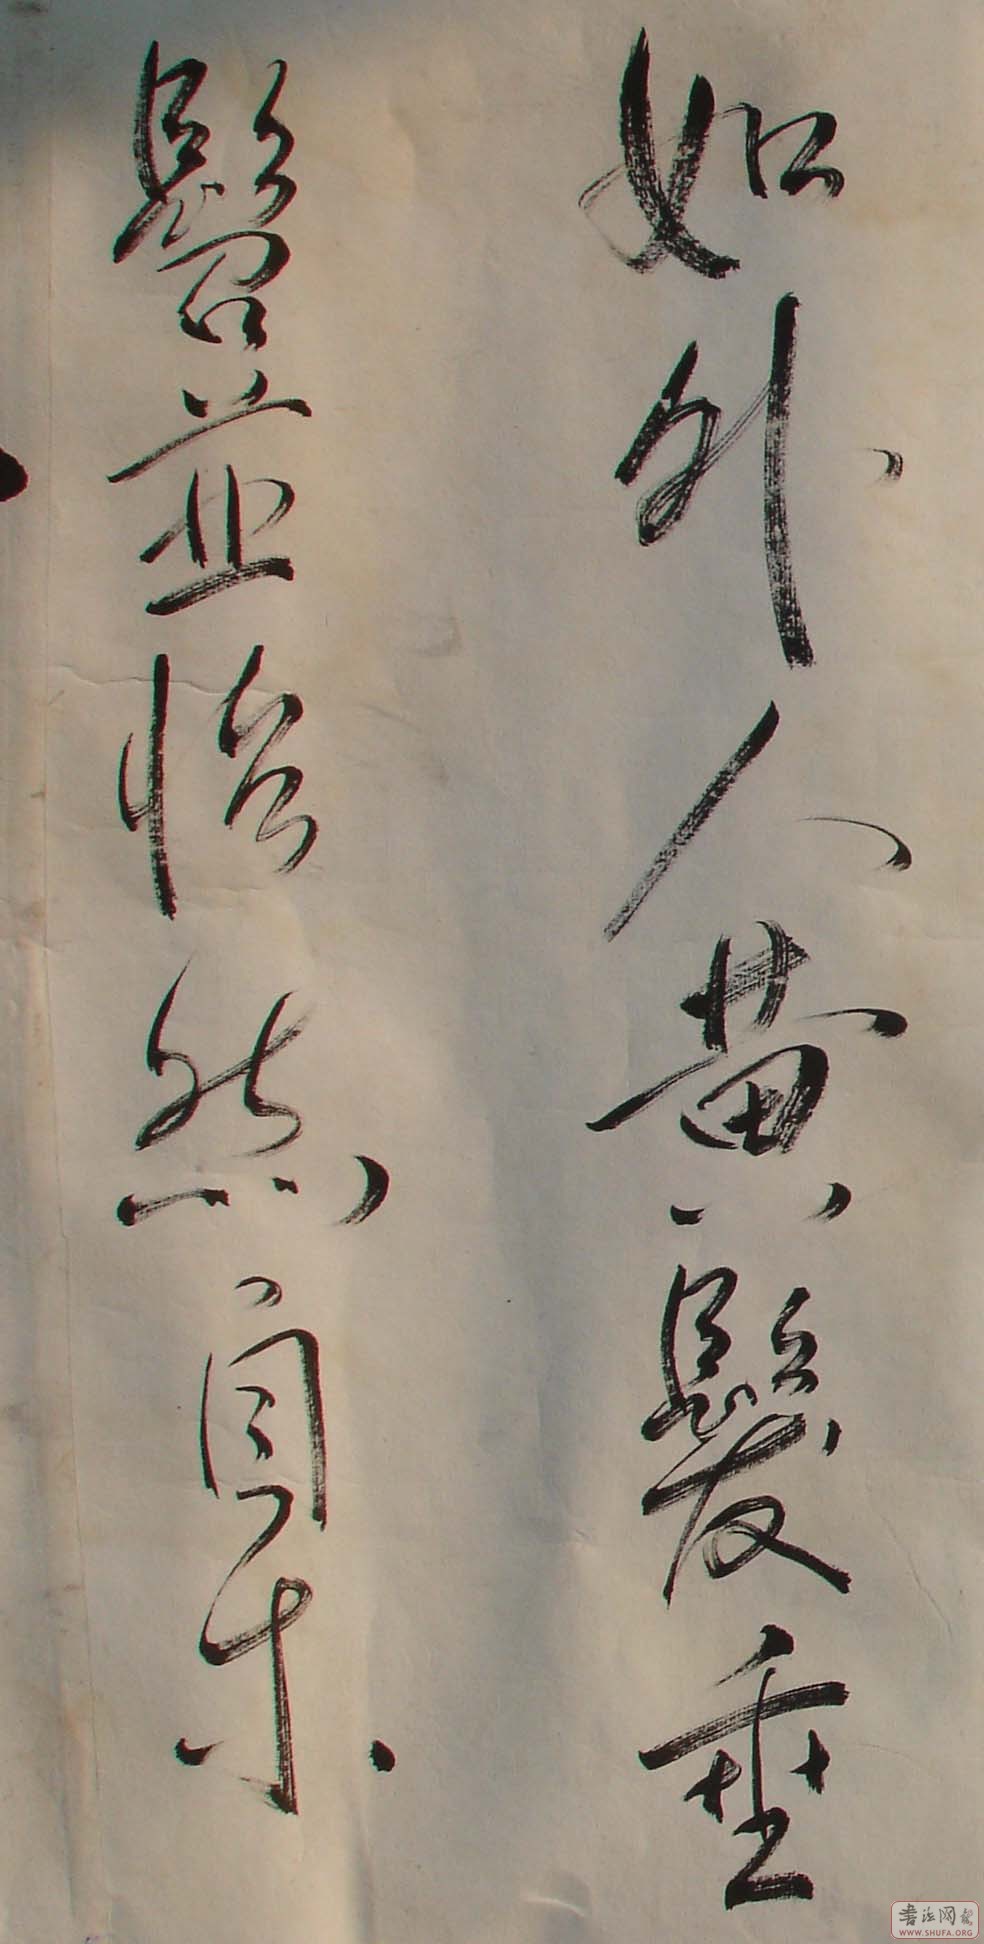 如外人黄髮垂
髫並怡然自乐
书法网
WWW.SHUFA.ORG